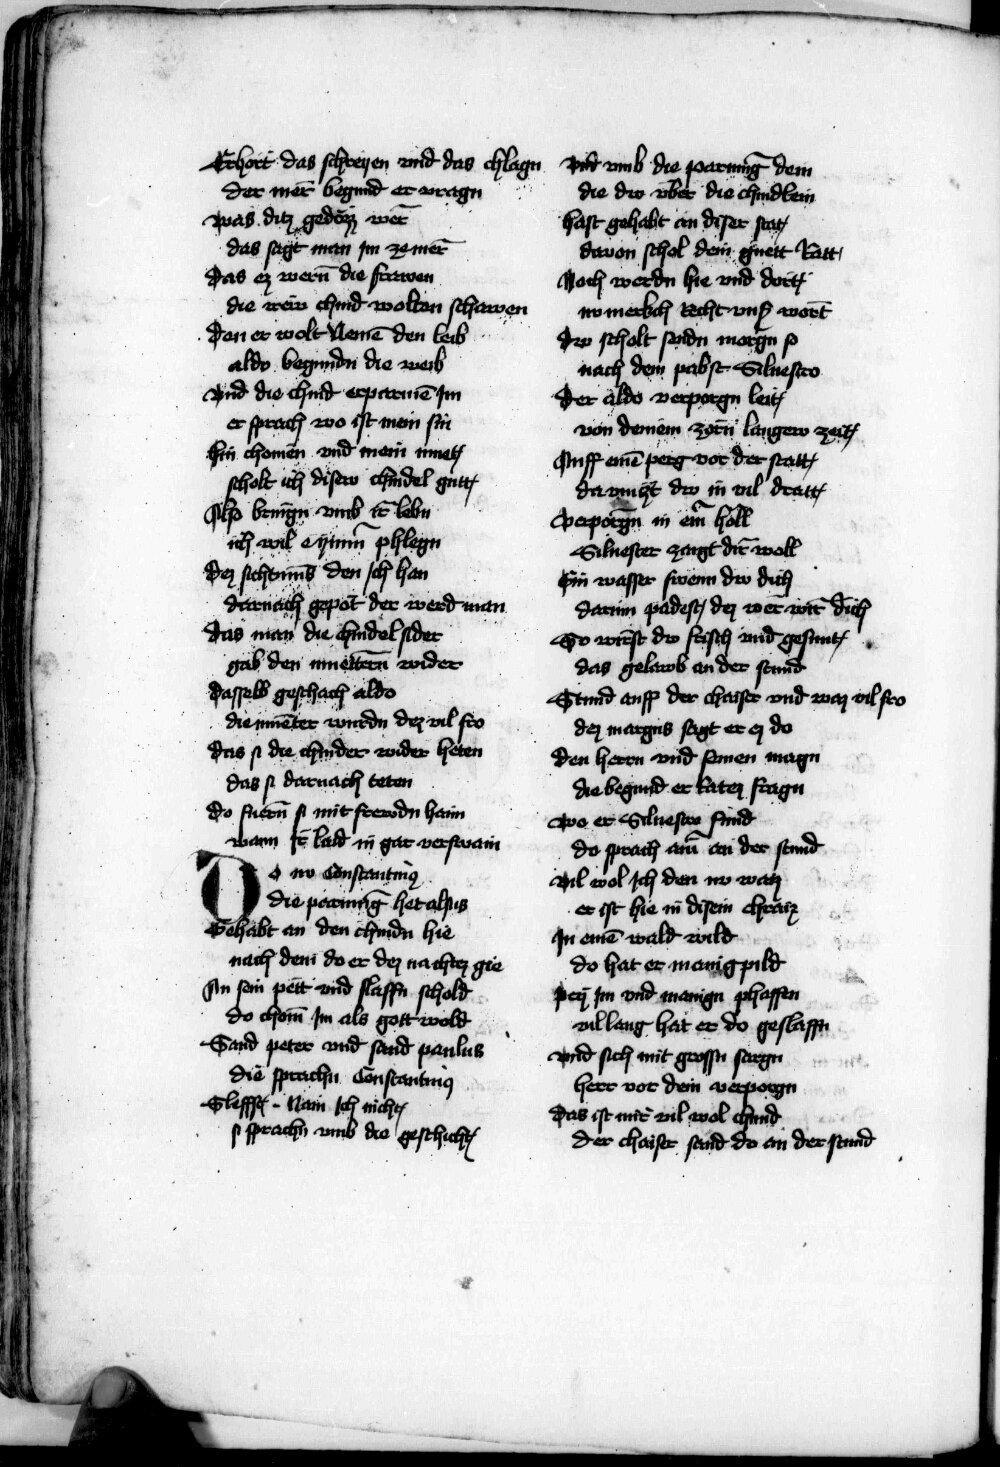 Erhort das schreyen vnd das chlagn
der mer begund er vragn
was ditz gedözz wer
das sagt man im ze mer
Das ez wern die frawen
die irew chind wolten schawen
Den er wolt Nemē den leib
aldo begundn die weib
vnd die chind erparmē Im
er sprach wo ist mein sin
Hin chomen vnd mein muet
scholt ich disew chindel guet
Also bringn vmb ir lebn
ich wil phlegn
Dez siechtums den Ich han
darnach gepot der werd man
Das man die chindel sider
gab den muettern wider
Dasselb geschach aldo
die mueter wurdn dez vil fro
Das si die chinder wider heten
das si darnach teten
Do fuern si mit frewdn haim
wann Ir laid in gar verswain
Do nv Constantinus
die parmūg het alsus
Gehabt an den chindn hie
nach dem do er dez nachtez gie
An sein pett vnd slaffn schold
do chom Im als gott wold
Sand peter vnd sand paulus
die sprachn Constantinus
Sleffst - Nain Ich nicht
si sprachn vmb die geschicht
vnd vmb die parmūg dein
die dw vber die chindlein
Hast gehabt an diser stat
davon schol dein guett Ratt
Noch werdn hie vnd dort
nv merkch Recht vnser wort
Dw scholt sendn morgn so
nach dem pabst Siluestro
Der aldo verporgn leit
von deinem zorn langew zeit
Auff einē perg vor der statt
da vinst dw in vil dratt
Verporgn in eim holl
Siluester zaigt dir woll
Ein wasser swenn dw dich
darinn padest dez wer wir dich
So wirst dw frisch vnd gesunt
das gelawb an der stund
Stund auff der chaiser vnd waz vil fro
dez margns sagt er ez do
Den herrn vnd seinen magn
die begund er Ratez fragn
Wo er Siluestro fund
do sprach ainr an der stund
Vil wol Ich den nv waiz
er ist hie in disem chraiz
In einē wald wild
do hat er manig pild
Pey Im vnd manign phaffen
vil lang hat er do geslaffn
Vnd sich mit grossn sargn
herr vor dein verporgn
Das ist mir vil wol chund
Der chaiser sand do an der stund